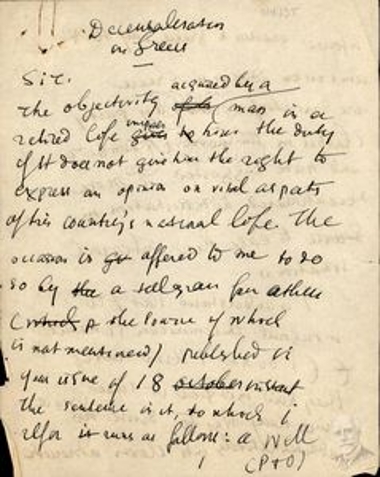 Decentralisation
in Greece
Sir.
acquired by a
The objectivity man in a
retired life imposes to him the duty
if it does not give him the right to
express an opinion on vital aspects
of his country's national life. The
occasion is offered to me to do
so by the a telegram from Athens
(which the source of which
is not mentioned) published in
your issue of 18 october instant
The sentence in it, to which i
refer is runs as follows: a
(PTO)